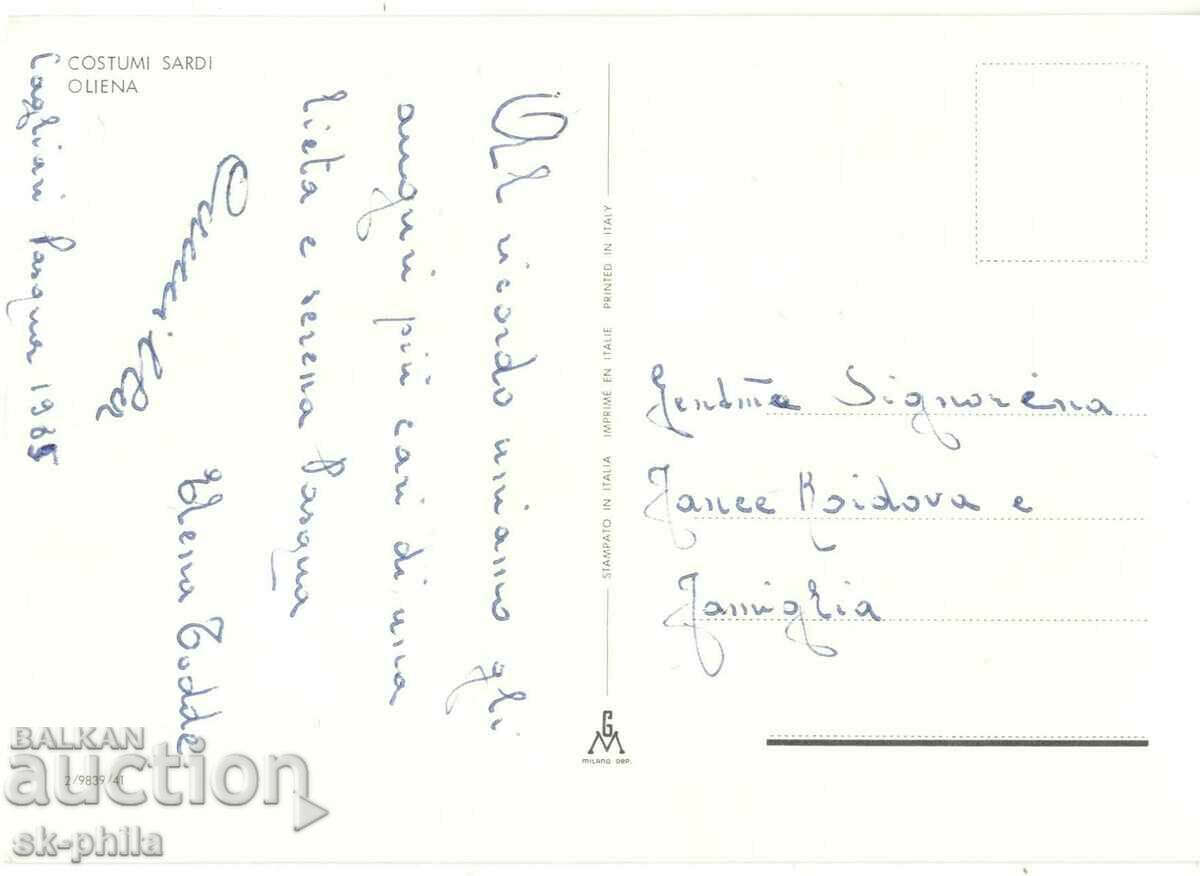 COSTUMI SARDI
OLIENA
Al ricordo uniamo gli
auguri più cari di una
lieta e serena Pasqua
Elena Todde
Cagliari Pasqua 1965
STAMPATO IN ITALIA IMPRIMÉ EN ITALIE PRINTED IN ITALY
Gent.ma Signorina
e
Famiglia
G
M
MILANO DEP.
2/9839/41
BALKAN
auction
sk-phila